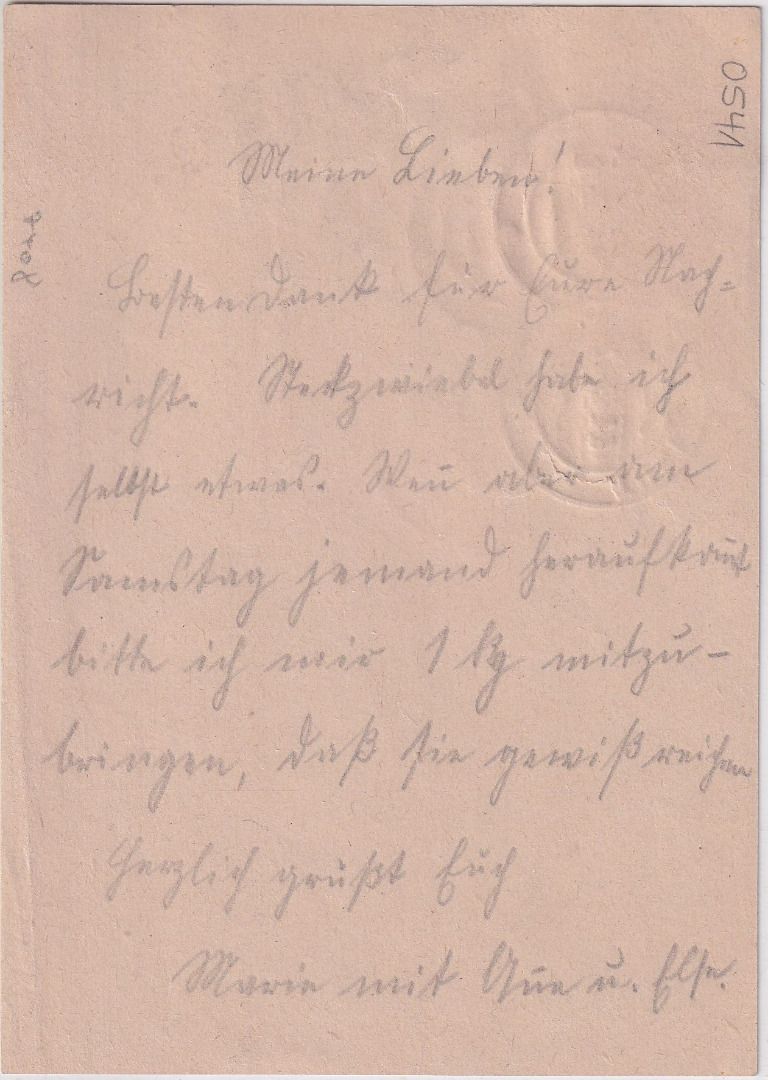 0541
Meine Lieben!
Besten Dank für Eure Nach-
richt. Steckzwiebel habe ich
selbst etwas. Weñ aber am
Samstag jemand heraufkom̄t
bitte ich mir 1 kg mitzu-
bringen, daß sie gewiß reichen
Herzlich grüßt Euch
Marie mit u. Else.